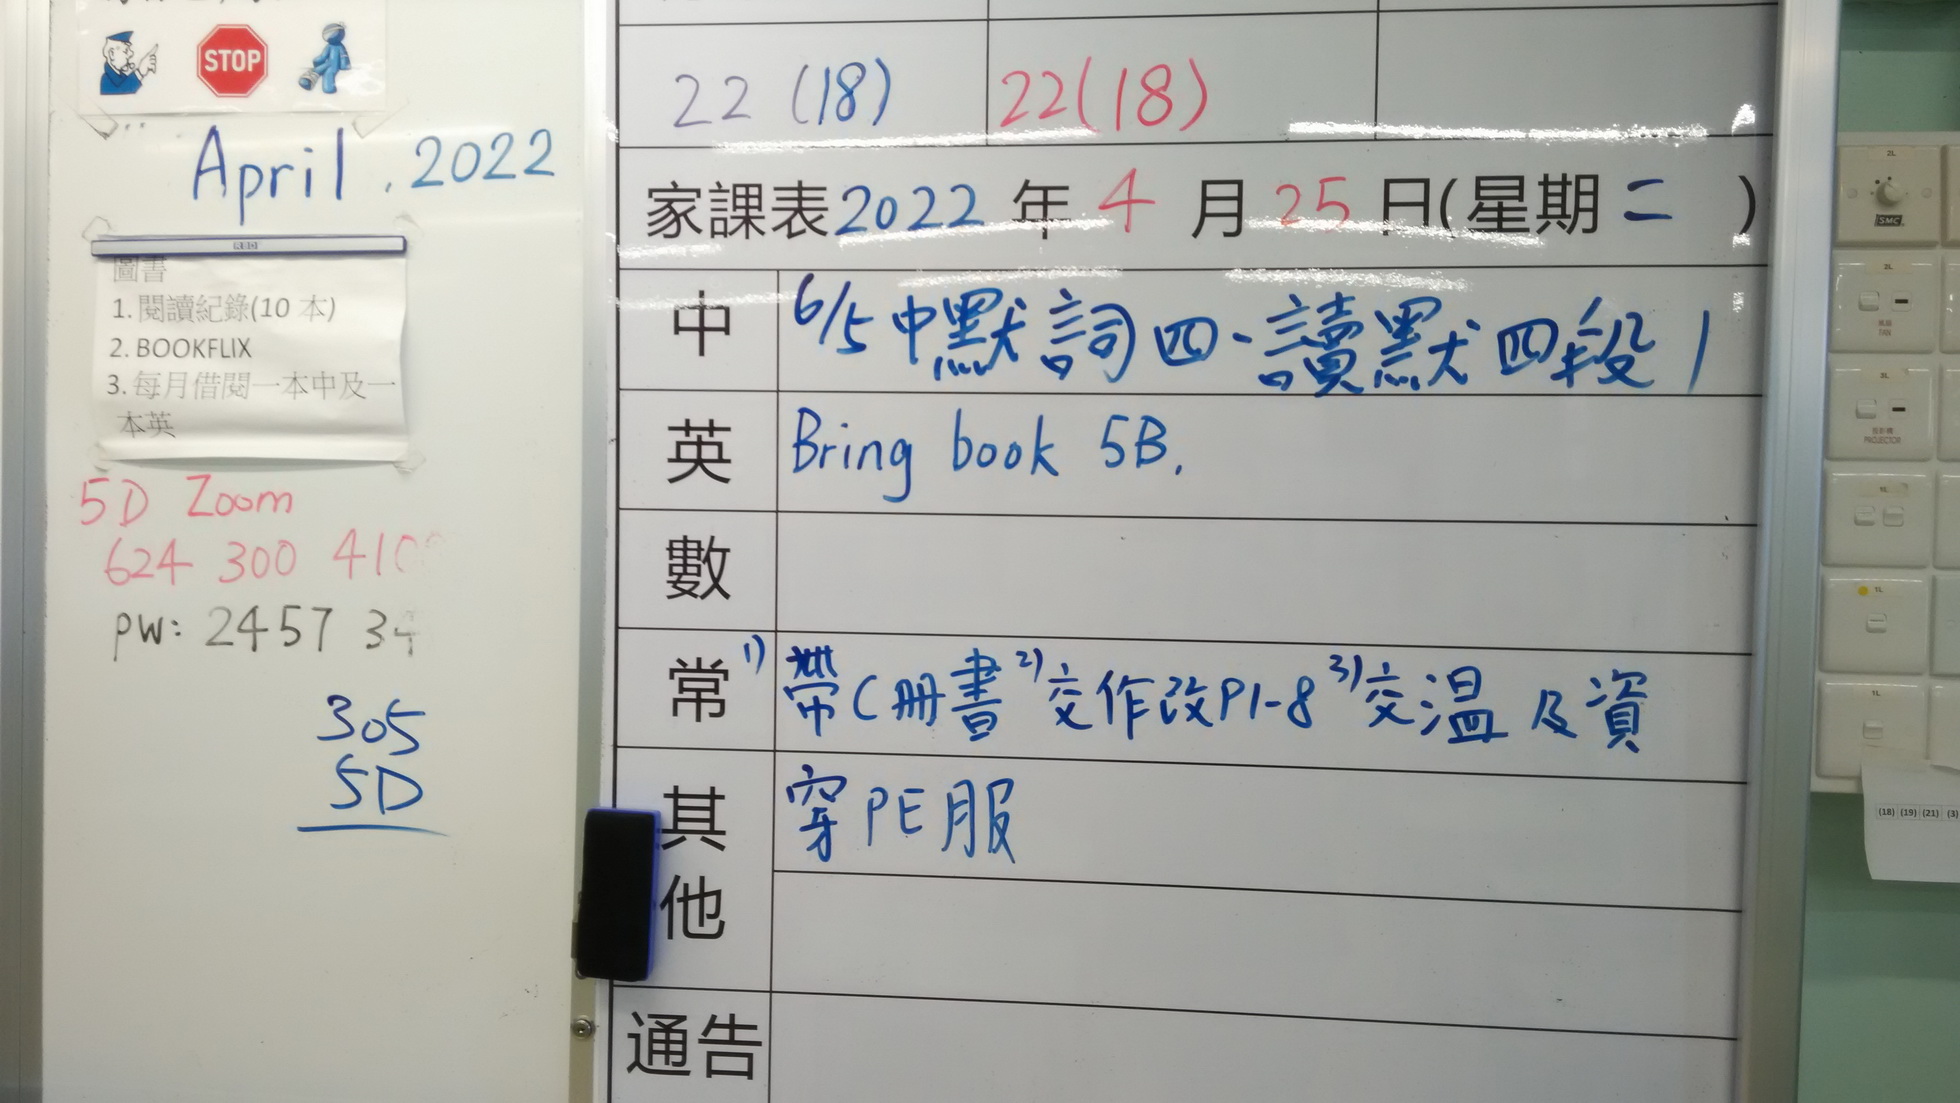 STOP
April . 2022
圖書
1. 閱讀紀錄(10 本)
2. BOOKFLIX
3. 每月借閱一本中及一
本英
5D Zoom
624 300 410
pw: 2457 34
305
5D
22 (18) 22(18)
家課表2022 年 4 月 25 日(星期 二 )
中 6/5 中默詞四、讀默四段1
英 Bring book 5B.
數
常 1) 帶C冊書 2) 交作改P1-8 3) 交溫及資
其他 穿PE服
通告
2L
SMC
2L
FAN
3L
投影機
PROJECTOR
1L
1L
1L
(18) (19) (21) (3)